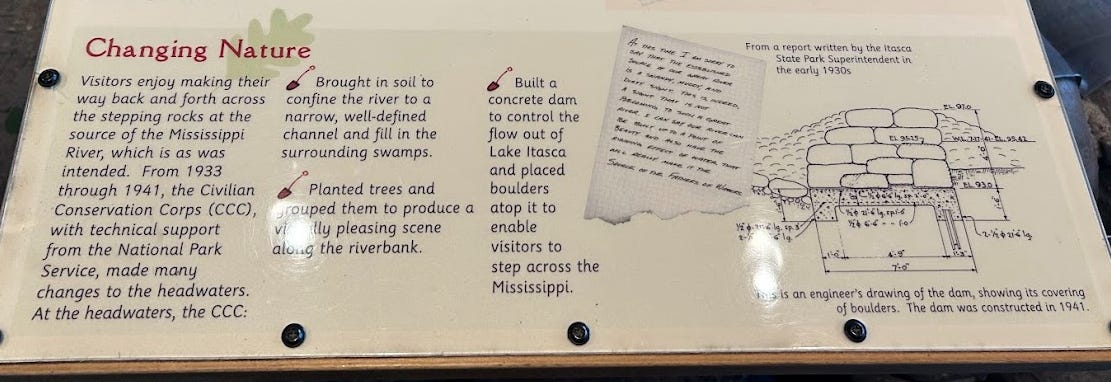 Changing Nature
Visitors enjoy making their
way back and forth across
the stepping rocks at the
source of the Mississippi
River, which is as was
intended. From 1933
through 1941, the Civilian
Conservation Corps (CCC),
with technical support
from the National Park
Service, made many
changes to the headwaters.
At the headwaters, the CCC:
Brought in soil to
confine the river to a
narrow, well-defined
channel and fill in the
surrounding swamps.
Planted trees and
grouped them to produce a
visually pleasing scene
along the riverbank.
Built a
concrete dam
to control the
flow out of
Lake Itasca
and placed
boulders
atop it to
enable
visitors to
step across the
Mississippi.
AT THIS TIME I AM SORRY TO
SAY THAT THE ESTABLISHED
SOURCE OF OUR GREAT RIVER
IS A SWAMPY, MUDDY, AND
DIRTY SIGHT. THIS IS, INDEED,
A SIGHT THAT IS NOT
BECOMING TO SUCH A GREAT
RIVER. I CAN SAY OUR RIVER CAN
BE BUILT UP TO A THING OF
BEAUTY AND ALSO HAVE A
RUNNING EFFECT OF WATER THAT
WILL REALLY MAKE IT THE
SOURCE OF THE FATHERS OF WATERS.
From a report written by the Itasca
State Park Superintendent in
the early 1930s
EL. 97.0
EL. 95.42
EL. 93.0
2-½ φ 21'-6" lg.
½ φ 6'-6" - - 1'-0"
1'-0"
4'-9"
1'-3"
7'-0"
This is an engineer's drawing of the dam, showing its covering
of boulders. The dam was constructed in 1941.